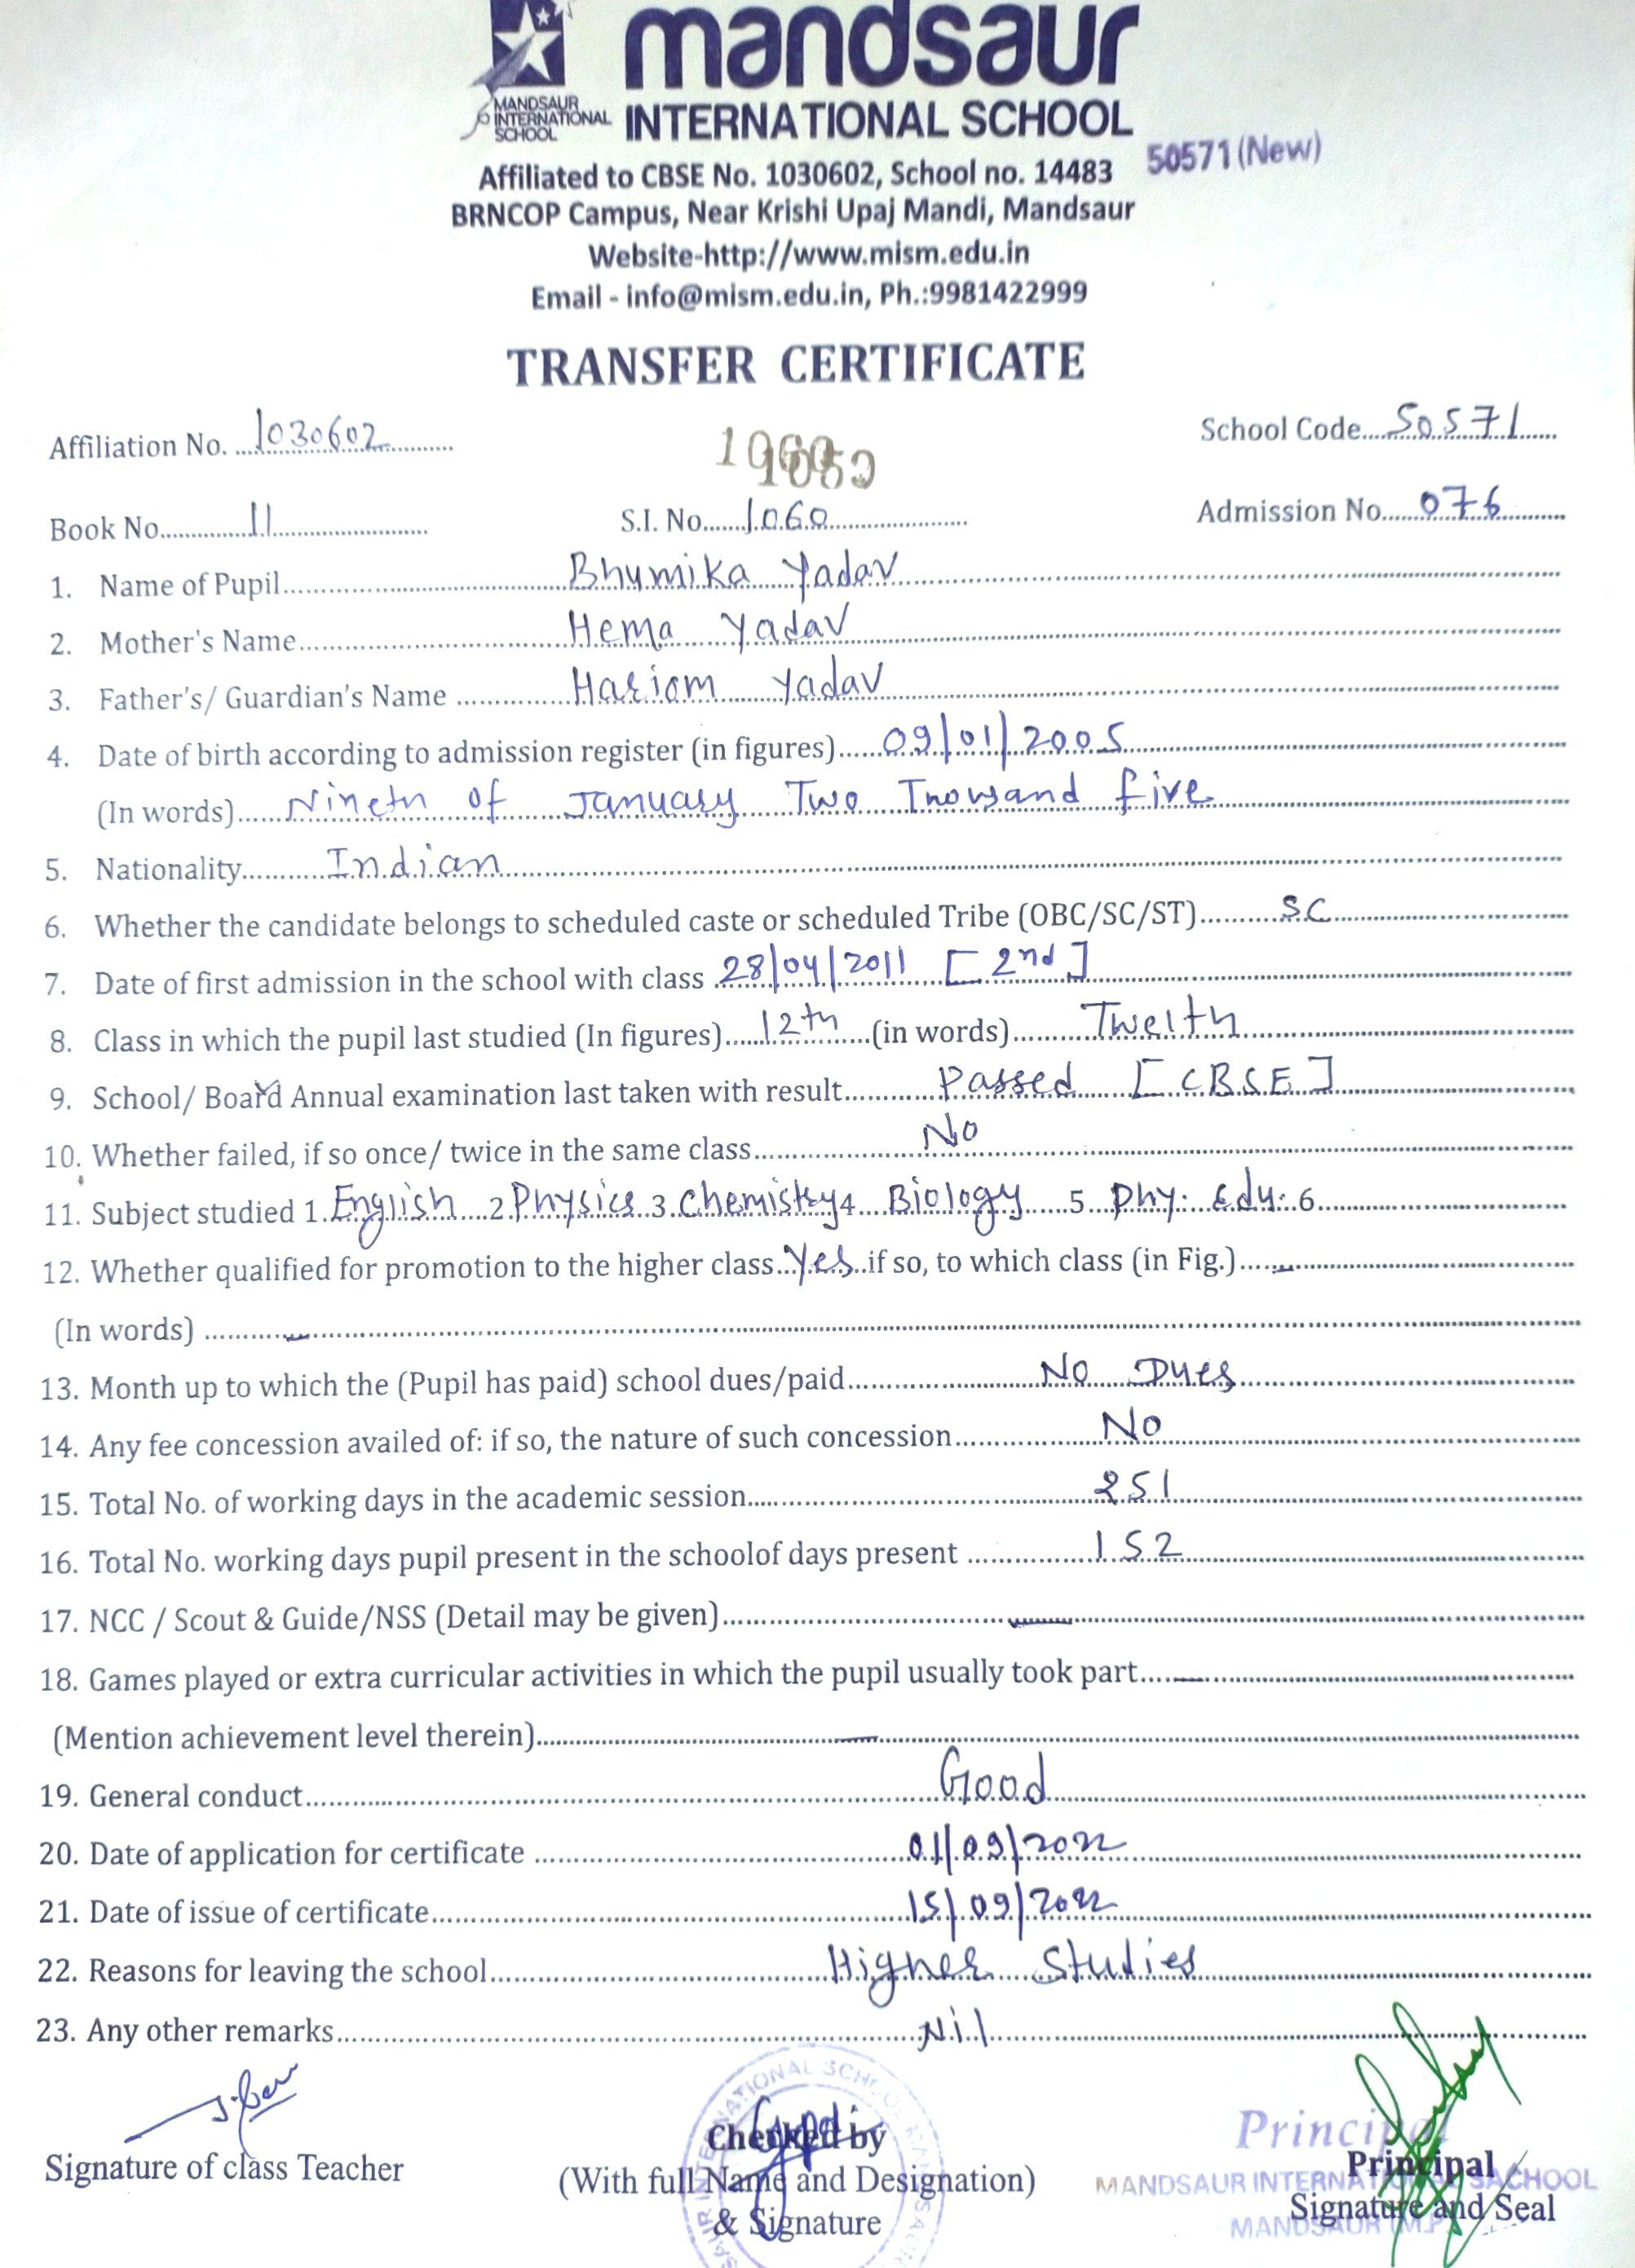 mandsaur
MANDSAUR
INTERNATIONAL
SCHOOL
INTERNATIONAL SCHOOL
50571 (New)
Affiliated to CBSE No. 1030602, School no. 14483
BRNCOP Campus, Near Krishi Upaj Mandi, Mandsaur
Website-http://www.mism.edu.in
Email - info@mism.edu.in, Ph.:9981422999
TRANSFER CERTIFICATE
Affiliation No. 1030602 School Code 50571
1060
Book No. 11 S.I. No. 1060 Admission No. 076
1. Name of Pupil Bhumika Yadav
2. Mother's Name Hema Yadav
3. Father's/ Guardian's Name Hariom Yadav
4. Date of birth according to admission register (in figures) 09/01/2005
(In words) Nineth of January Two Thousand five
5. Nationality Indian
6. Whether the candidate belongs to scheduled caste or scheduled Tribe (OBC/SC/ST) SC
7. Date of first admission in the school with class 28/04/2011 [2nd]
8. Class in which the pupil last studied (In figures) 12th (in words) Twelth
9. School/ Board Annual examination last taken with result Passed [CBSE]
10. Whether failed, if so once/ twice in the same class No
11. Subject studied 1. English 2 Physics 3. Chemistry 4 Biology 5 Phy. Edu. 6
12. Whether qualified for promotion to the higher class Yes if so, to which class (in Fig.) -
(In words) -
13. Month up to which the (Pupil has paid) school dues/paid No Dues
14. Any fee concession availed of: if so, the nature of such concession No
15. Total No. of working days in the academic session 251
16. Total No. working days pupil present in the schoolof days present 152
17. NCC / Scout & Guide/NSS (Detail may be given) -
18. Games played or extra curricular activities in which the pupil usually took part -
(Mention achievement level therein) -
19. General conduct Good
20. Date of application for certificate 01/09/2022
21. Date of issue of certificate 15/09/2022
22. Reasons for leaving the school Higher Studies
23. Any other remarks Nil
Signature of class Teacher
Checked by
(With full Name and Designation)
& Signature
Principal
MANDSAUR INTERNATIONAL SACHOOL
MANDSAUR (M.P.)
Principal
Signature and Seal